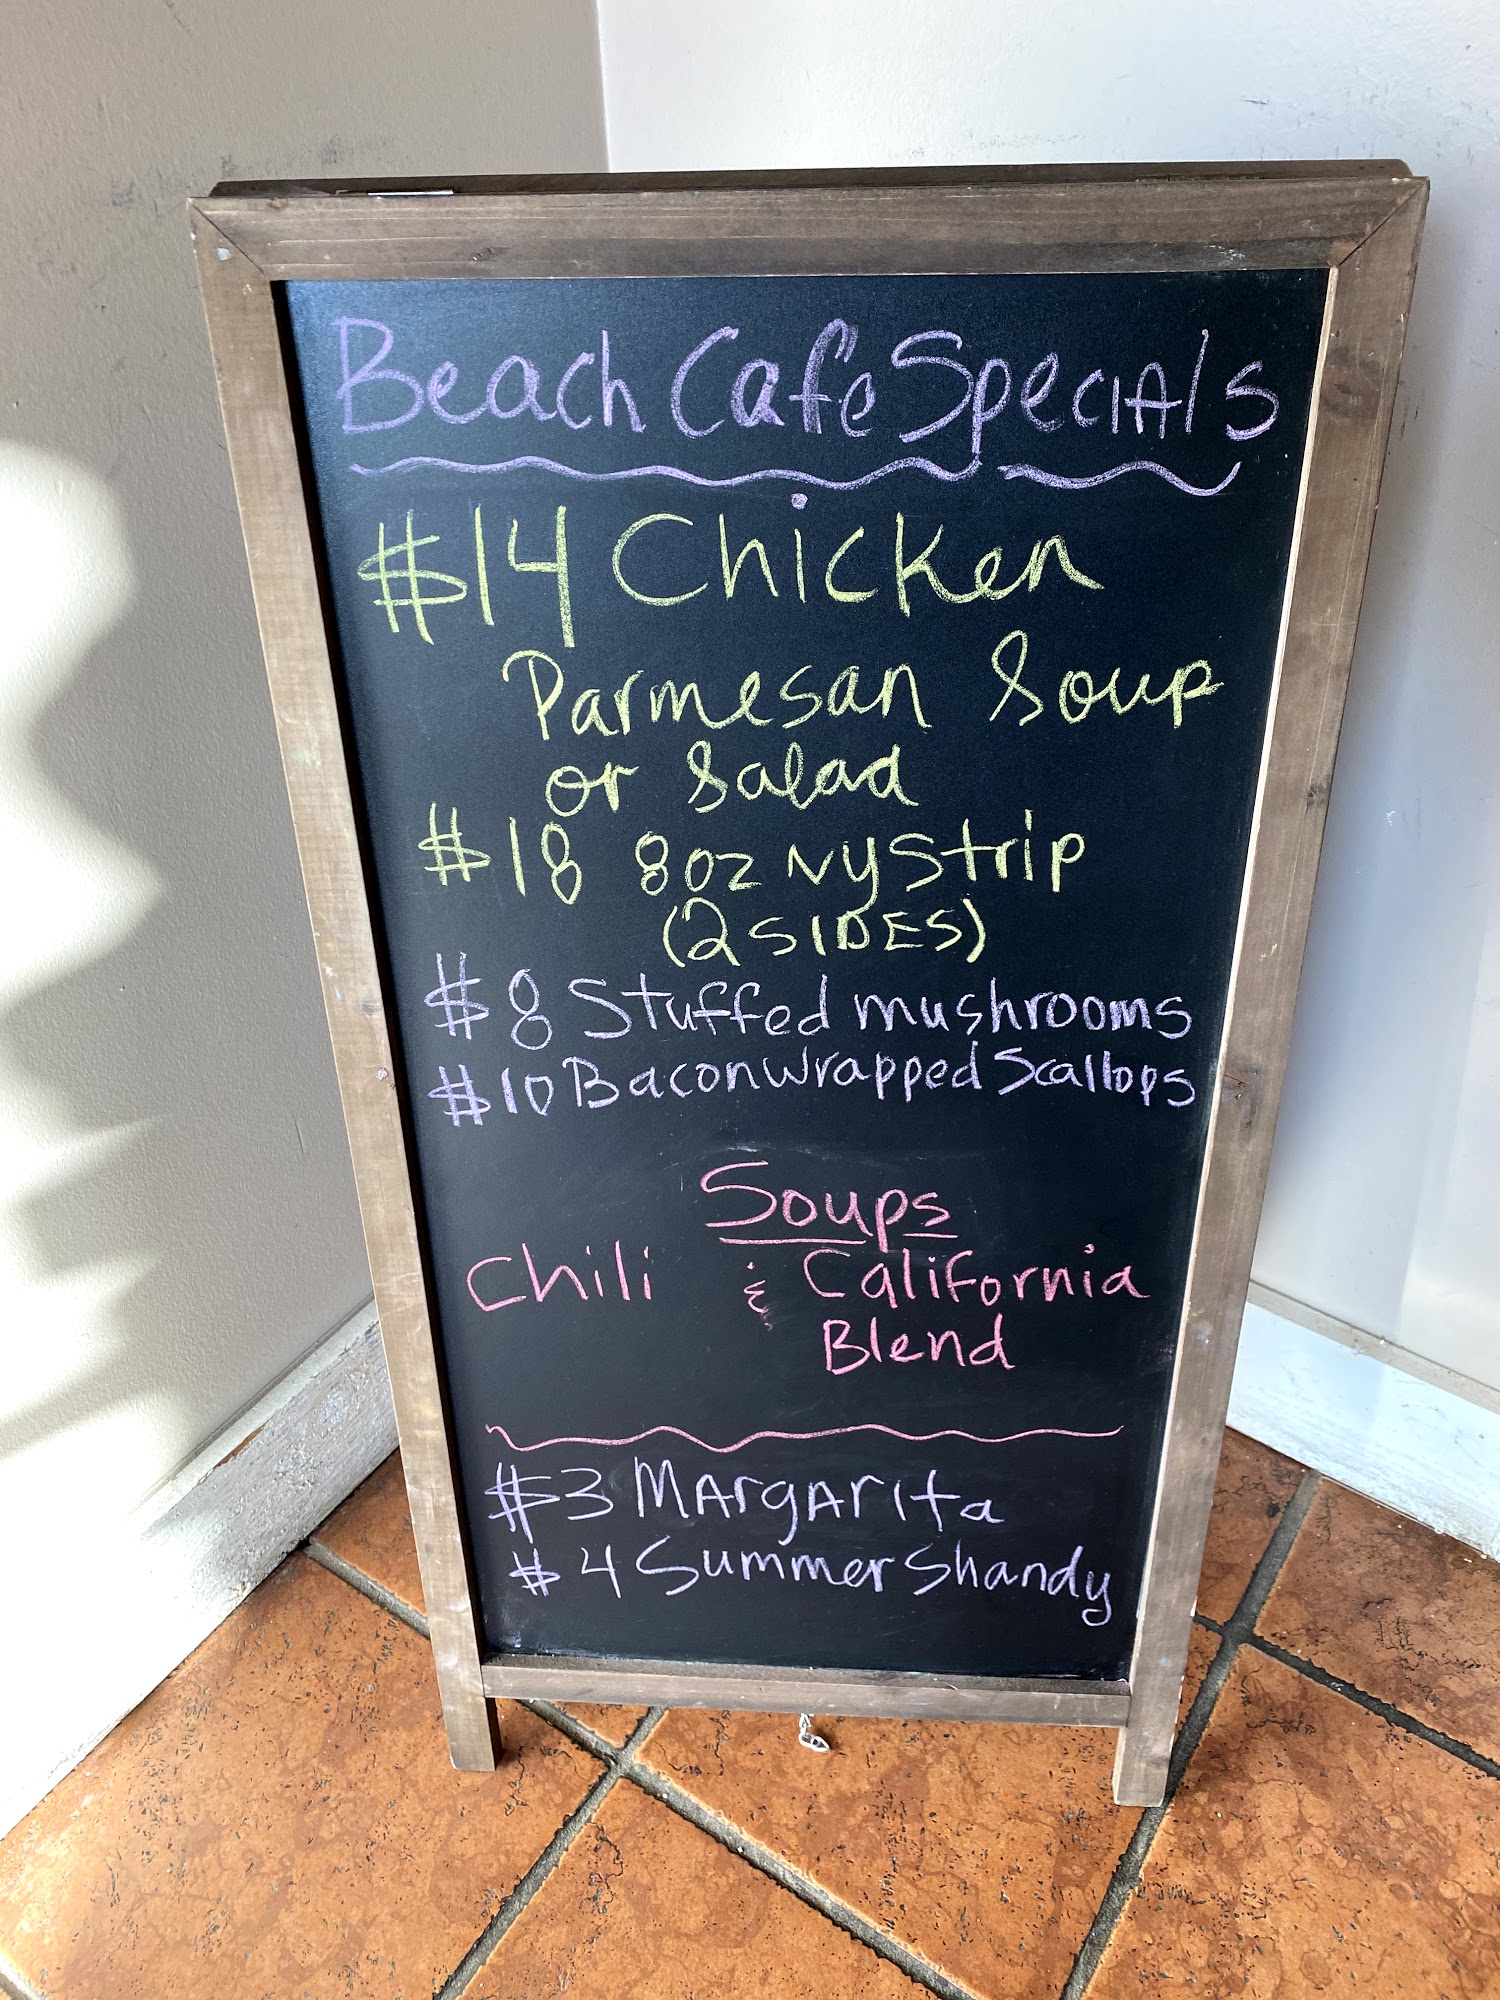 Beach Cafe Specials
$14 Chicken
Parmesan Soup
or Salad
$18 8oz NY Strip
(2 SIDES)
$8 Stuffed mushrooms
$10 Bacon wrapped Scallops
Soups
Chili & California
Blend
$3 Margarita
$4 Summer Shandy